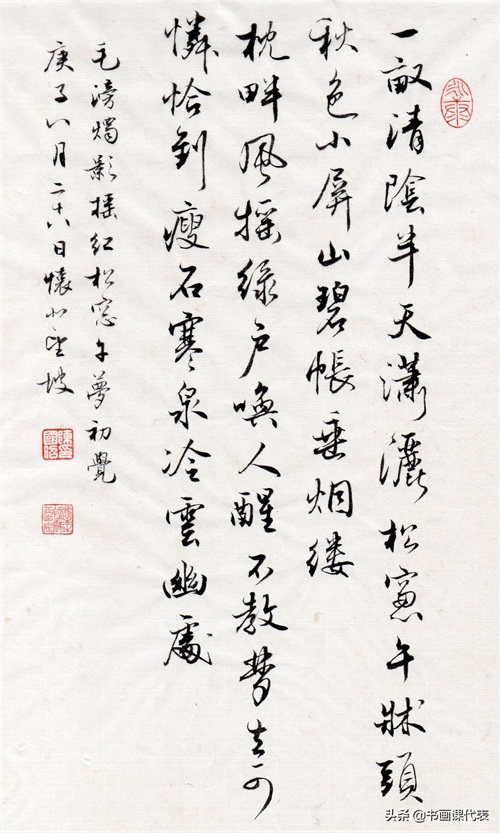 一畝清陰半天瀟灑松窓午牀頭
秋色小屏山碧帳垂烟縷
枕畔風搖綠戶喚人醒不教夢去可
憐恰到瘦石寒泉冷雲幽處
毛滂燭影搖紅松窓午夢初覺
庚子八月二十八日懷坡
头条 @书画课代表